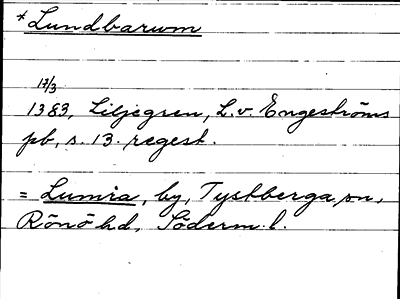 *Lundbarum
17/3
1383, Liljegren, L.v. Engeströms
pb, s. 13. regest.
= Lumra, by, Tystberga sn,
Rönö hd, Söderm. l.